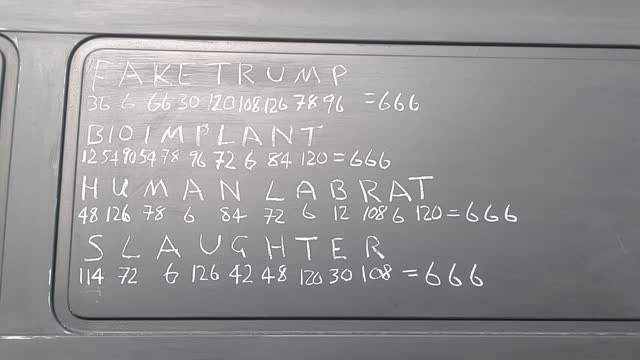 FAKE TRUMP
36 6 66 30 120 108 126 78 96 =666
BIOIMPLANT
12 54 90 54 78 96 72 6 84 120=666
HUMAN LABRAT
48 126 78 6 84 72 6 12 108 6 120=666
SLAUGHTER
114 72 6 126 42 48 120 30 108 =666